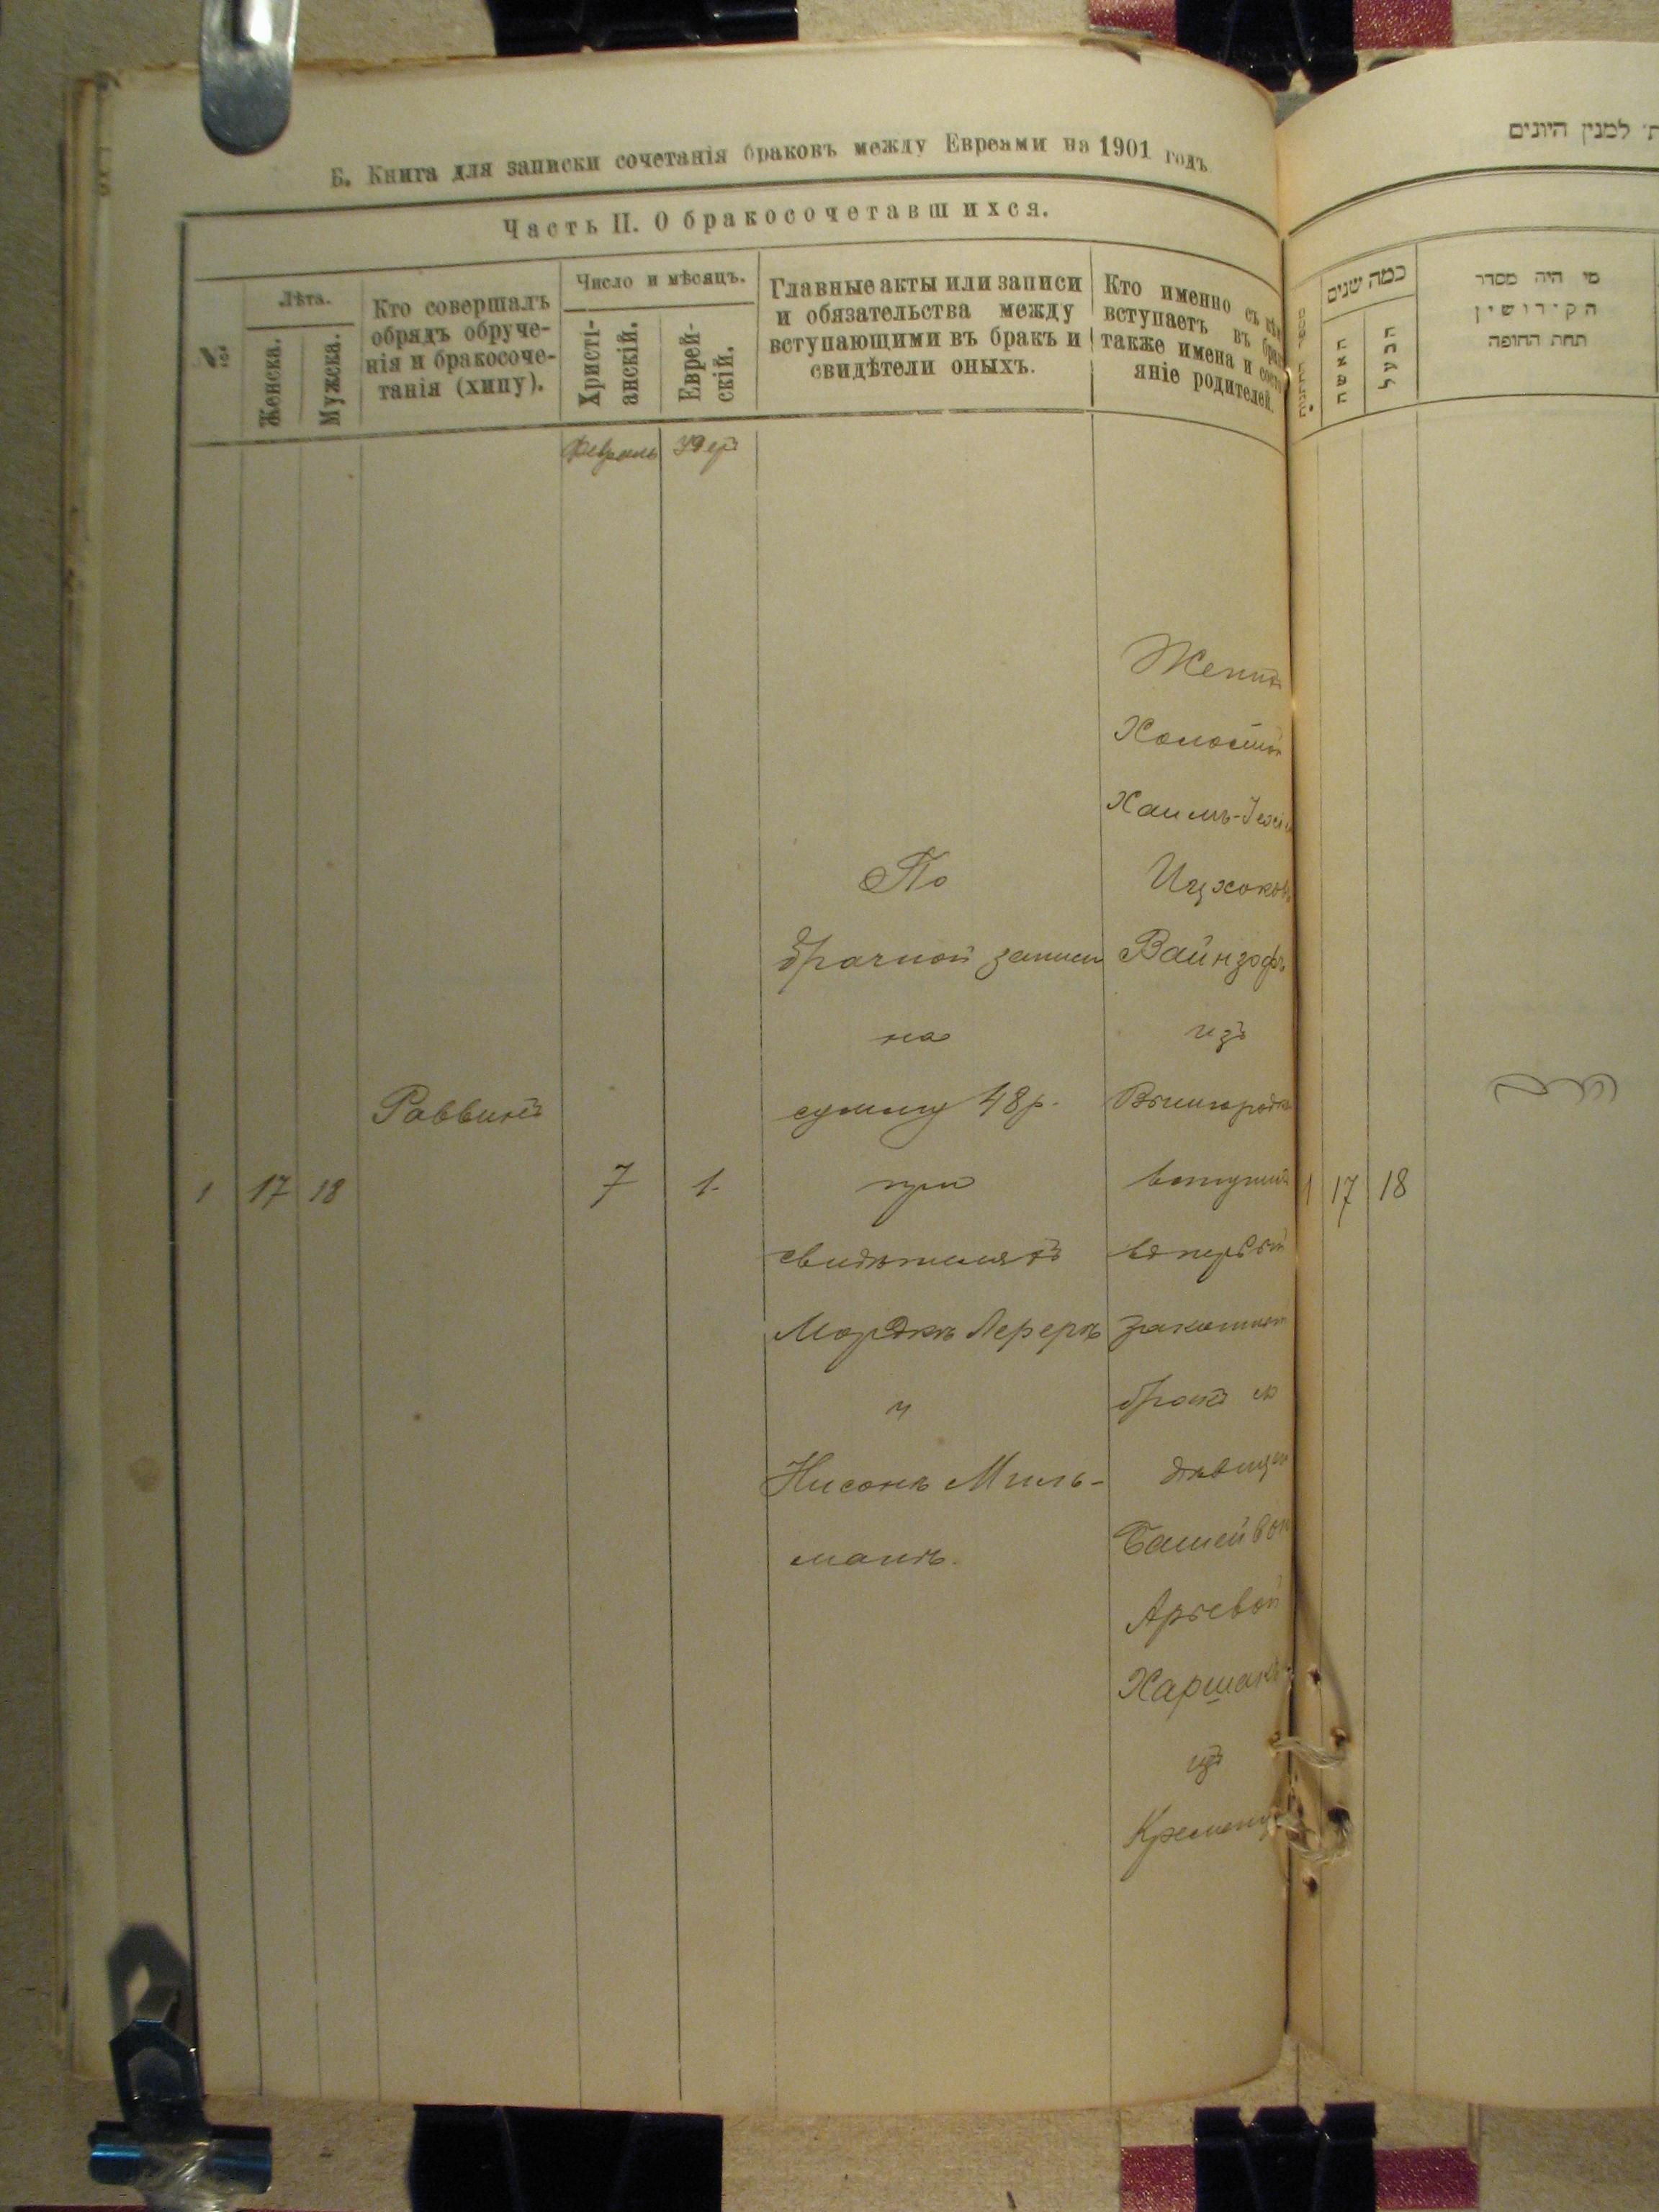 Б. Книга для записки сочетанія браковъ между Евреями на 1901 годъ
Часть II. О бракосочетавшихся.
№
Лѣта.
Женска.
Мужска.
Кто совершалъ
обрядъ обруче-
нія и бракосоче-
танія (хипу).
Число и мѣсяцъ.
Христі-
анскій.
Еврей-
скій.
Главные акты или записи
и обязательства между
вступающими въ бракъ и
свидѣтели оныхъ.
Кто именно съ
вступаетъ въ
также имена и
яніе родителей.
Февраль
1
17
18
Раввинъ
7
1.
По
брачной записи
на
сумму 48 р.
при
свидѣтеляхъ
Мордкѣ Лерерѣ
и
Нисонѣ Миль-
манѣ.
Холостой
Хаимъ-
Вайнзофъ
изъ
въ первый
бракъ съ
Арьевой
изъ
למנין היונים
כמה שנים
האשה
הבעל
מי היה מסדר
הקידושין
תחת החופה
1
17
18